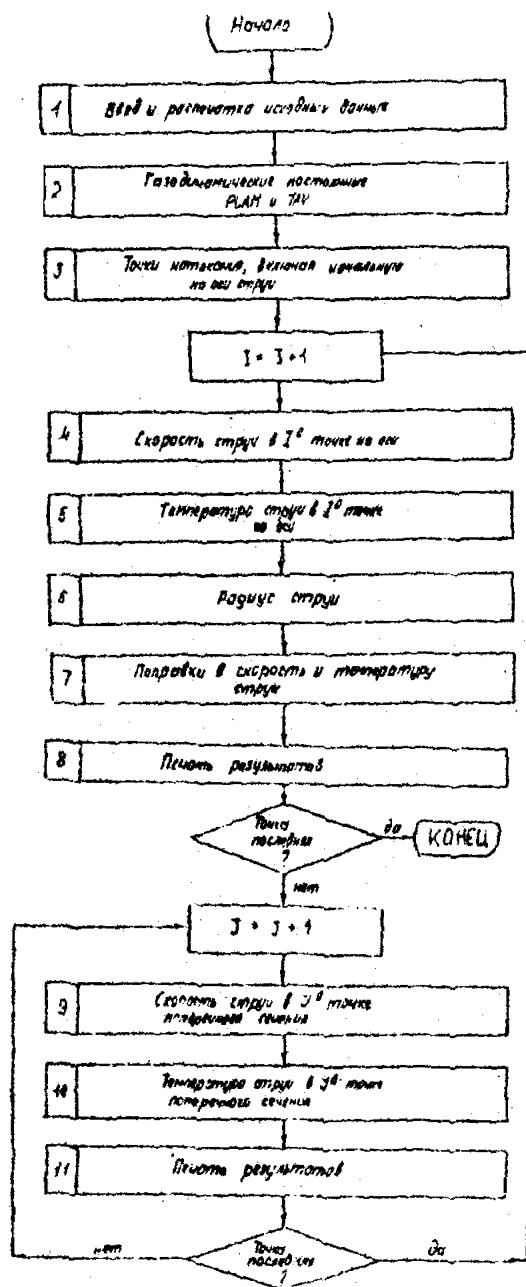 Начало
1
Ввод и распечатка исходных данных
2
Газодинамические постоянные
PLAM и TAV
3
Точки натекания, включая начальную
на оси струи
I = I + 1
4
Скорость струи в I й точке на оси
5
Температура струи в I й точке
на оси
6
Радиус струи
7
Поправки в скорость и температуру
струи
8
Печать результатов
Точка
последняя
?
да
КОНЕЦ
нет
J = J + 1
9
Скорость струи в J й точке
поперечного сечения
10
Температура струи в J й точке
поперечного сечения
11
Печать результатов
нет
Точка
последняя
?
да